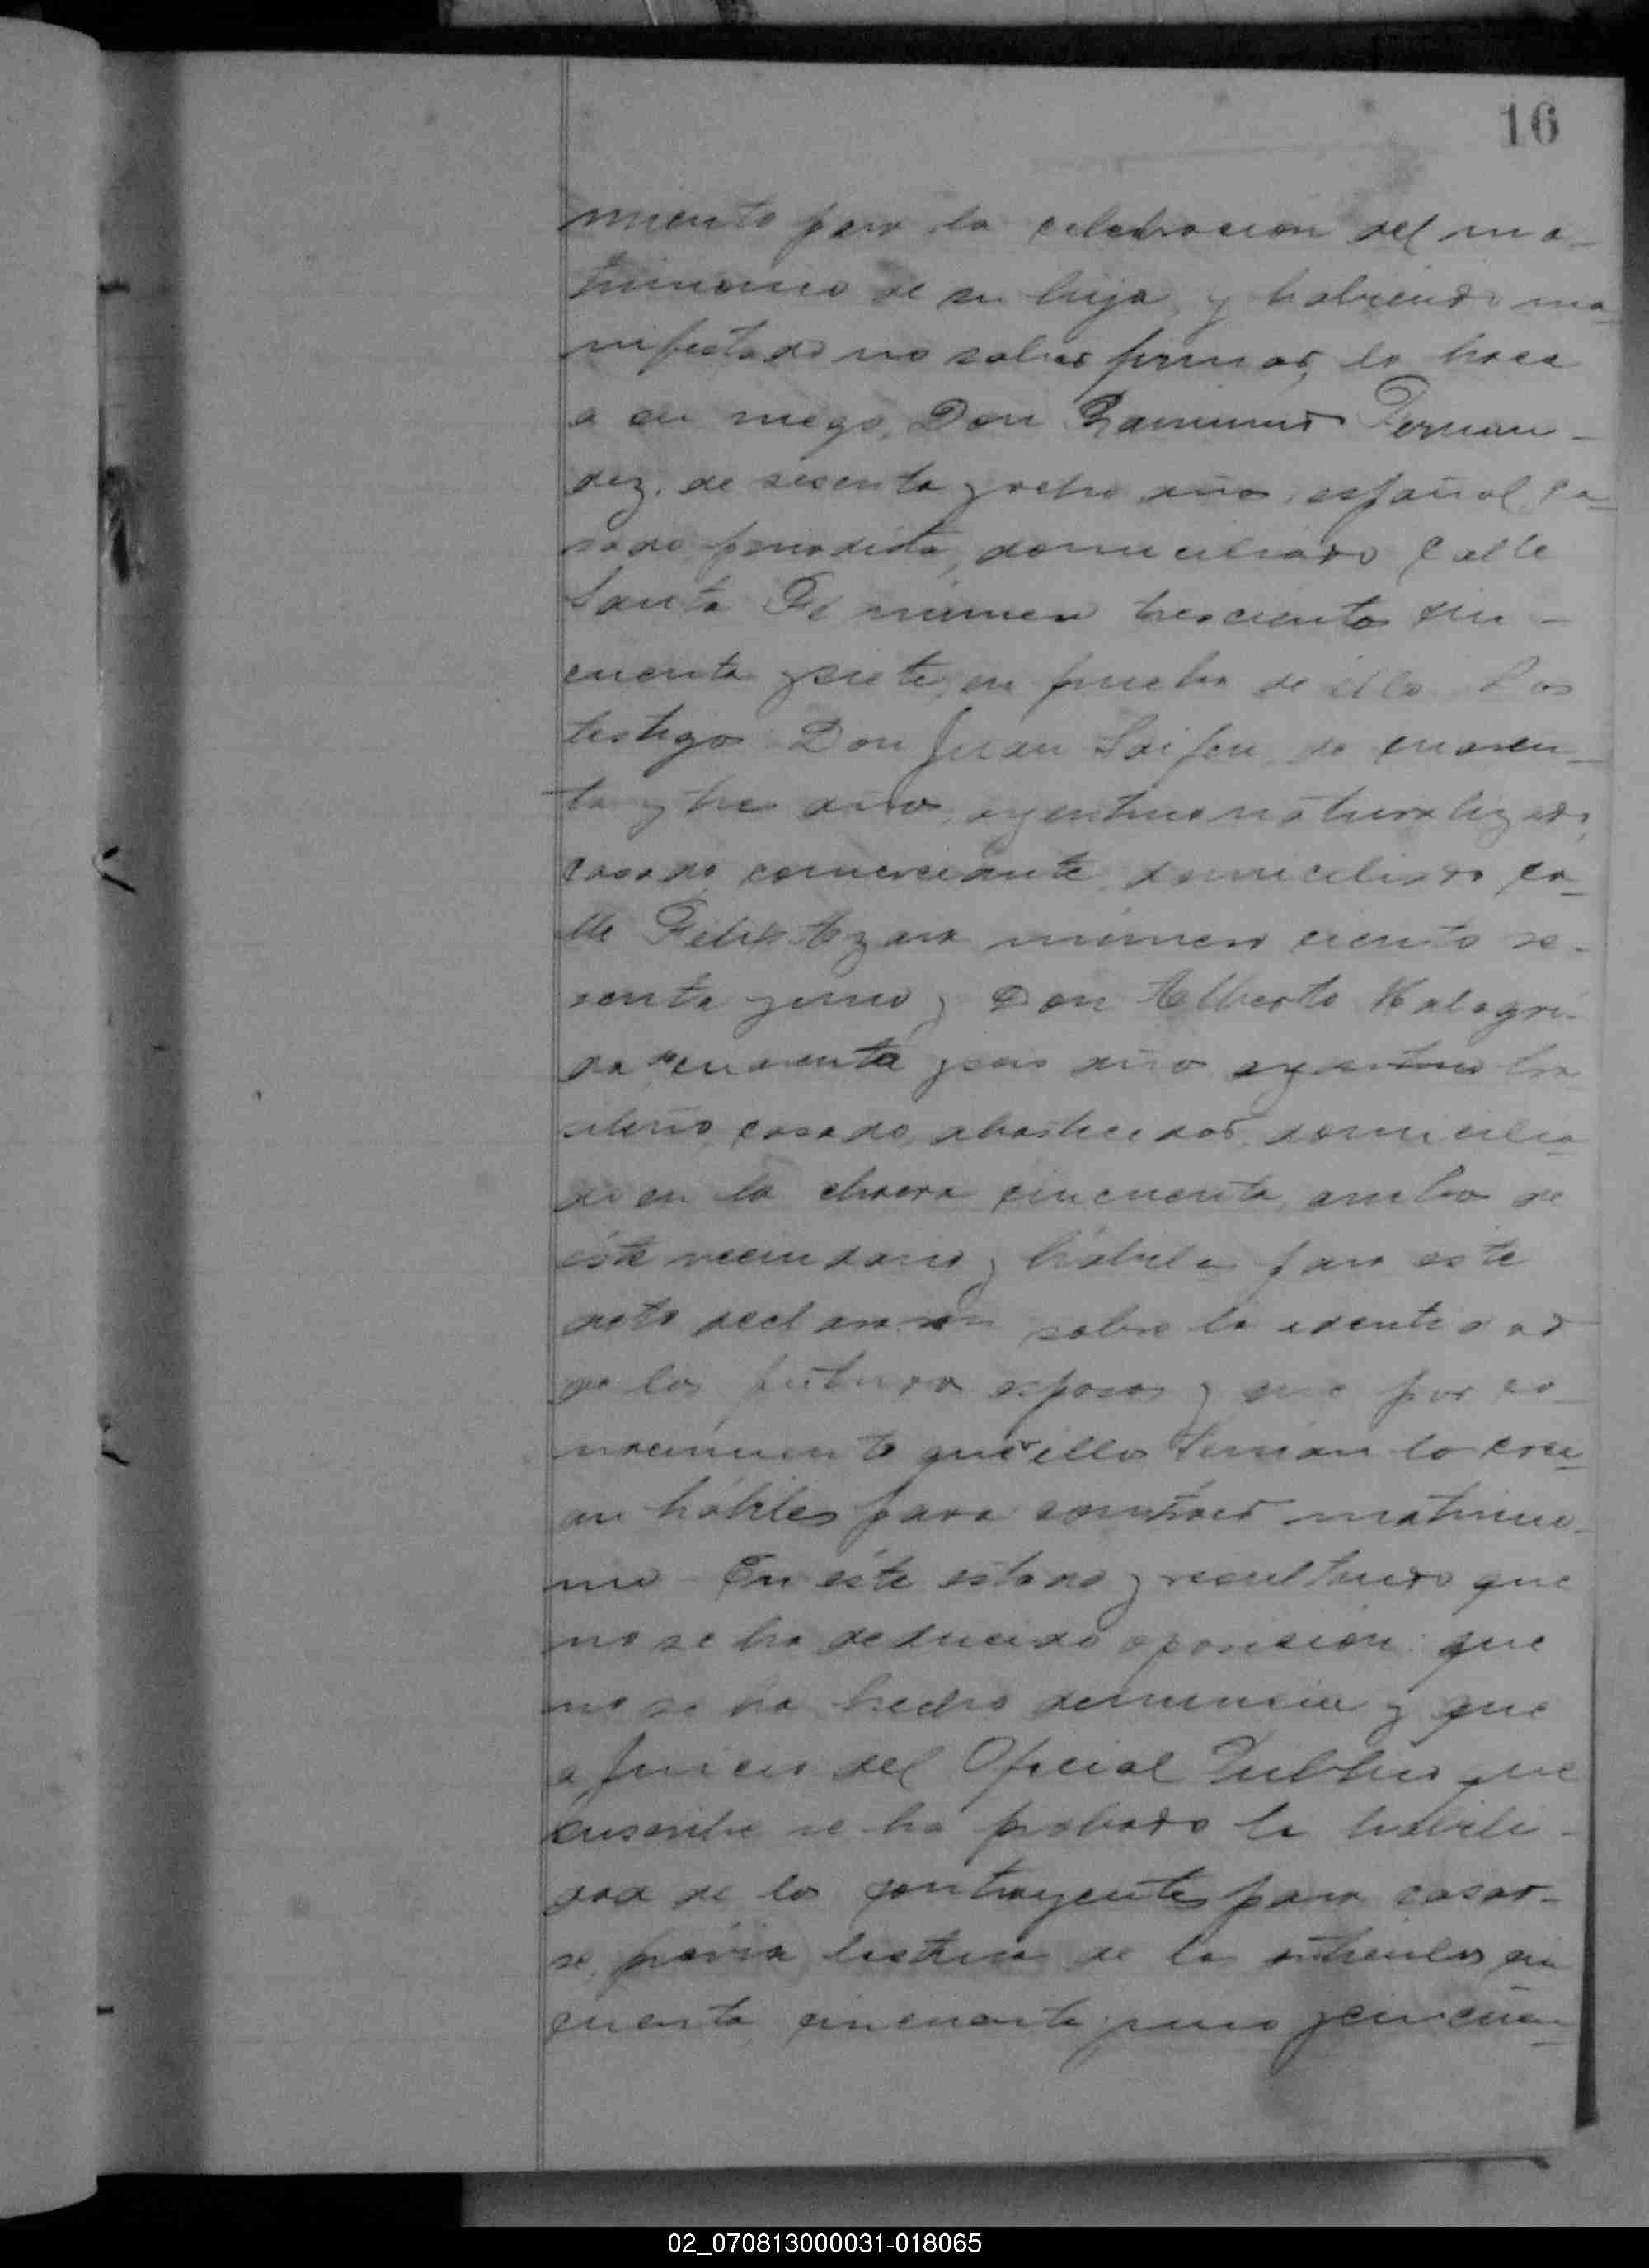 16
miento para la celebracion del ma-
trimonio de su hija, y habiendo ma-
nifestado no saber firmar, lo hace
a su ruego, Don Ramiro Fernan-
dez, de sesenta y ocho años, español, ca-
sado, periodista, domiciliado Calle
Santa Fé número trescientos cin-
cuenta y siete, en prueba de ello. Los
testigos Don Juan de cuaren-
ta y tres años, argentino naturalizado,
casado, comerciante, domiciliado ca-
lle Felix Azara número ciento se-
senta y uno y Don Alberto
da de cuarenta y seis años argentino bra-
sileño, casado, abastecedor, domicilia-
do en la chacra cincuenta, ambos de
éste vecindario y hábiles para este
acto declararon sobre la identidad
de los futuros esposos y que por co-
nocimiento que de ellos tenian los creí-
an hábiles para contraer matrimo-
nio En este estado y resultando que
no se ha deducido oposicion que
no se ha hecho denuncia y que
a juicio del Oficial Público que
suscribe se ha probado la habili-
dad de los contrayentes para casar-
se, previa lectura de los articulos cin
cuenta, cincuenta y uno y cincuen-
02_070813000031-018065